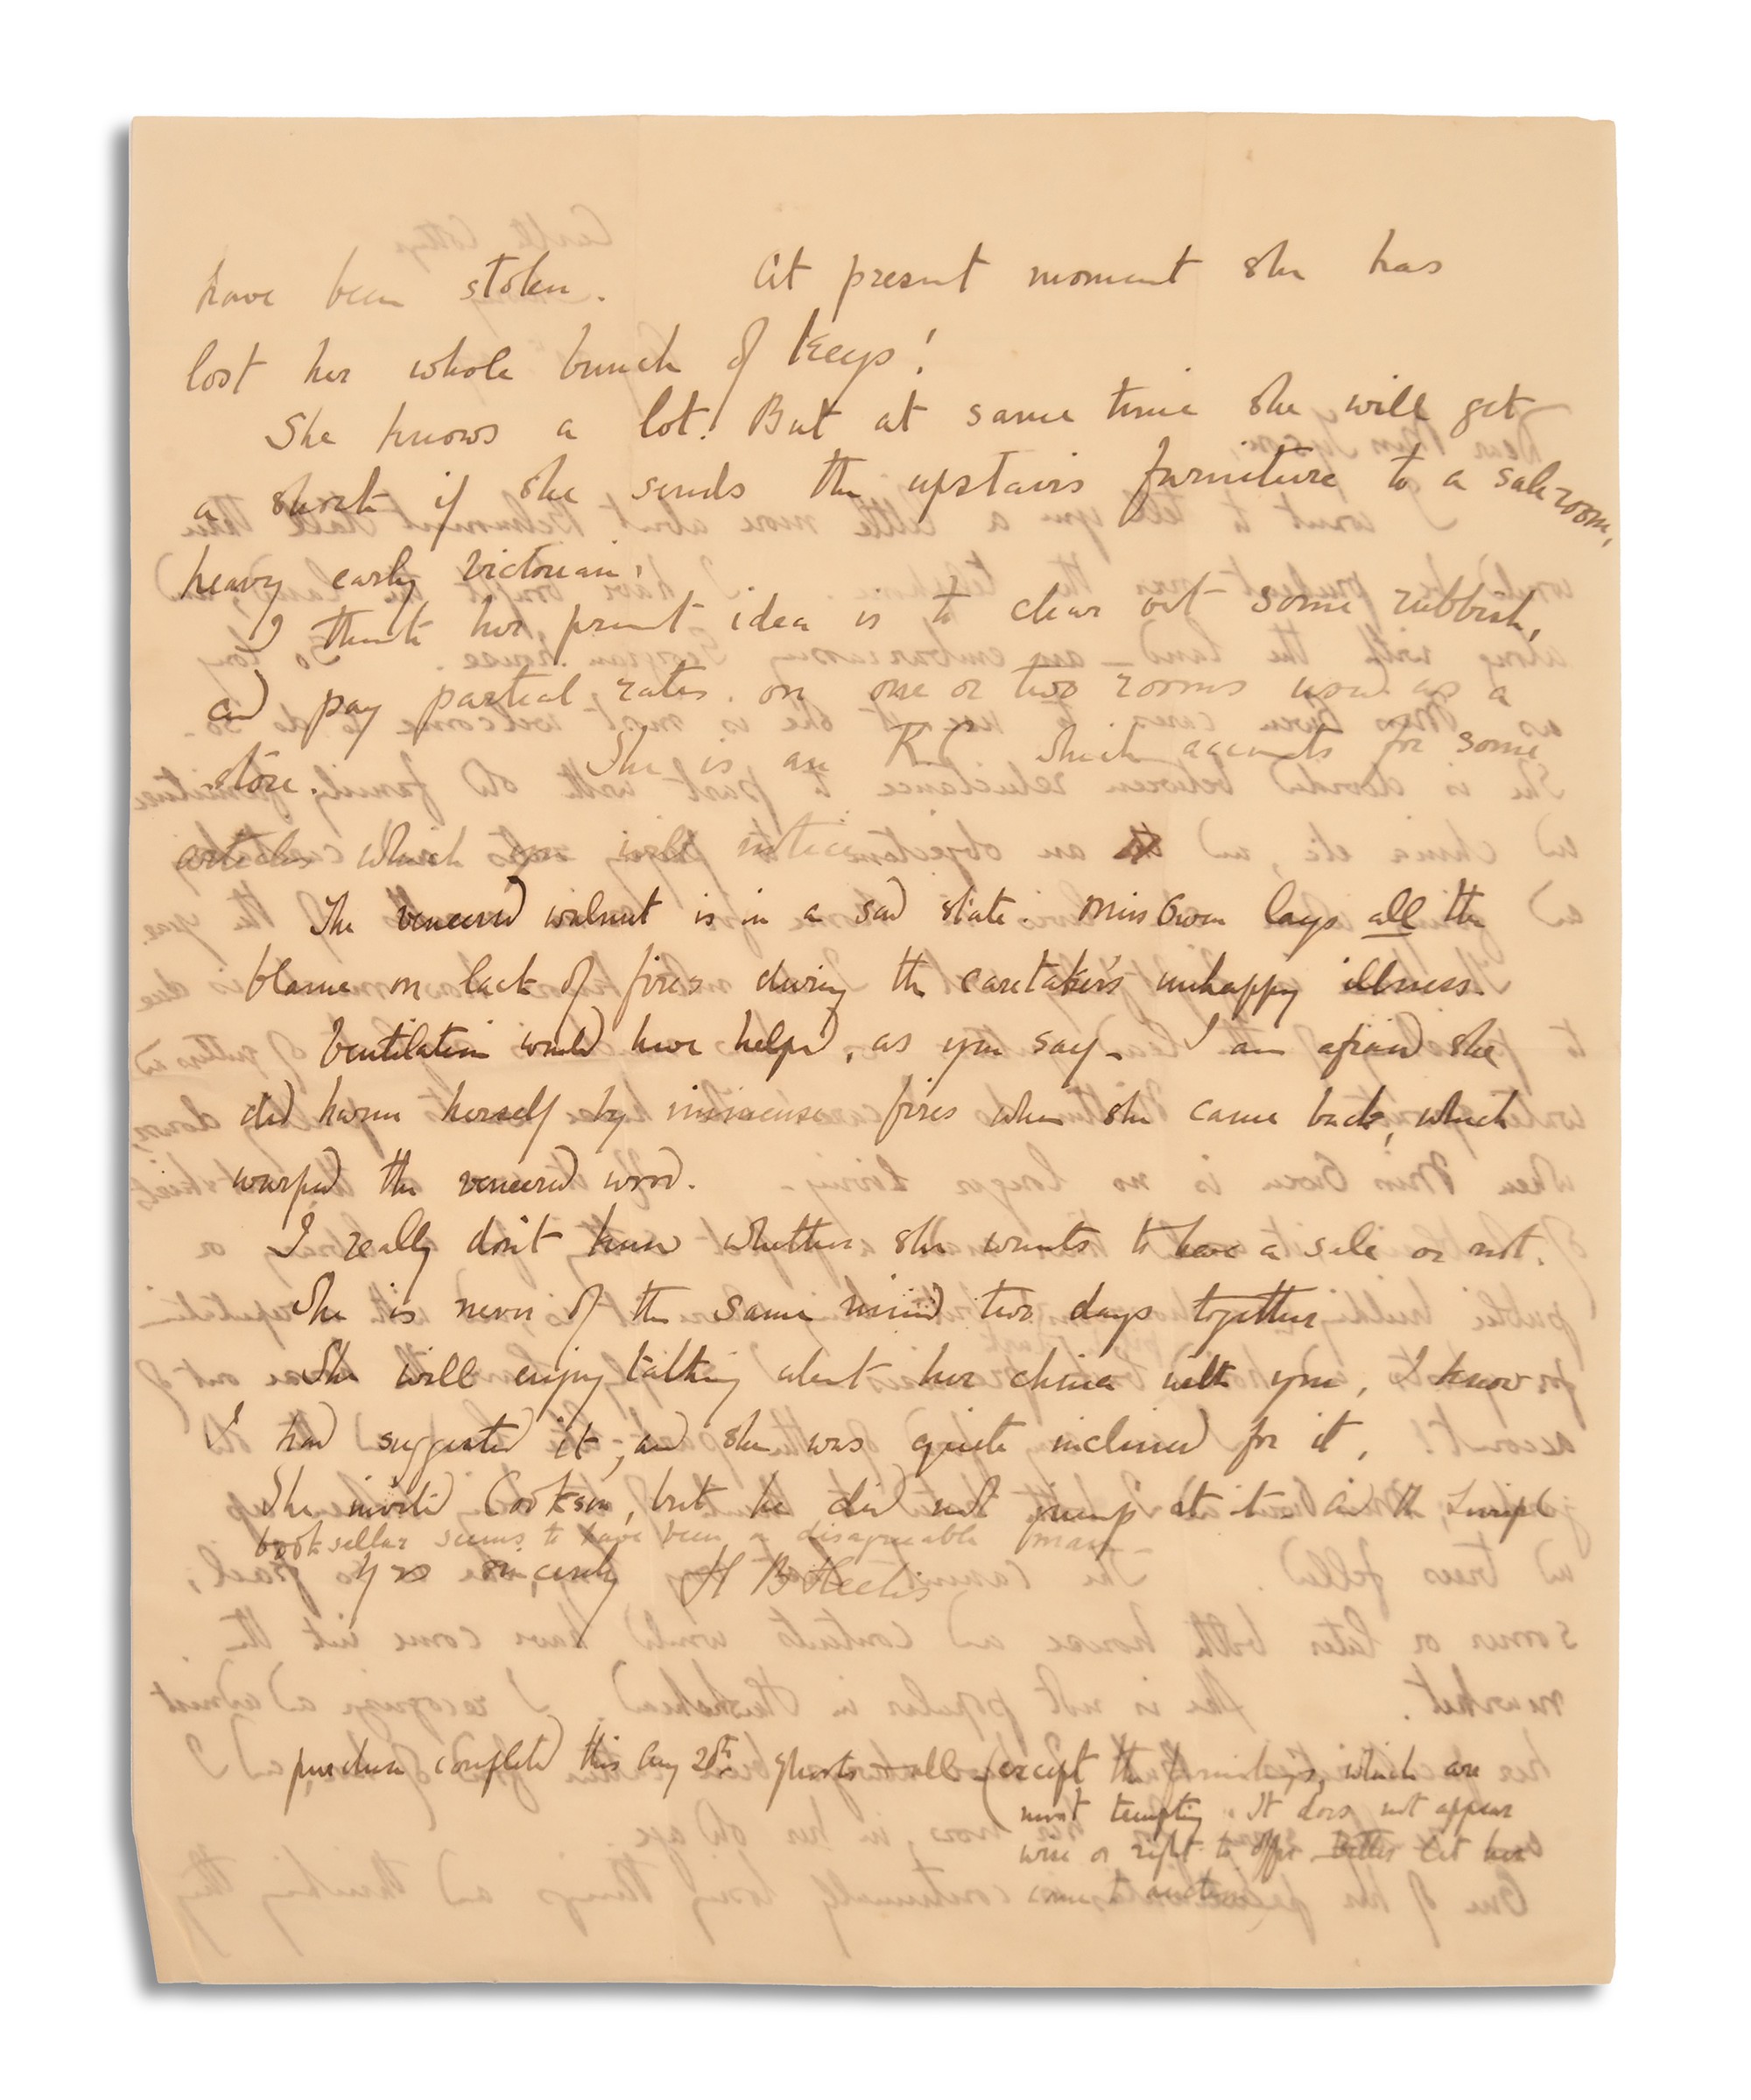 have been stolen. At present moment she has
lost her whole bunch of keys!
She knows a lot! But at same time she will get
a shock if she sends the upstairs furniture to a sale-room,
heavy early Victorian.
I think her present idea is to clear out some rubbish,
and pay partial rates on one or two rooms used as a
store. She is an R.C. which accounts for some
articles which you will notice
The veneered walnut is in a sad state. Miss Owen lays all the
blame on lack of fires during the caretaker's unhappy illness.
Ventilation would have helped, as you say. I am afraid she
did harm herself by immense fires when she came back, which
warped the veneered wood.
I really don't know whether she wants to have a sale or not.
She is never of the same mind two days together
She will enjoy talking about her china with you, I know
I had suggested it, and she was quite inclined for it.
She invited Cookson, but he did not jump at it - and the
bookseller seems to have been a disagreeable man -
Yrs sincerely H B Heelis
purchase completed this day 28th ghosts & all (except the furnishings, which are
most tempting. It does not appear
wise or right to offer. Better let her
come to auction